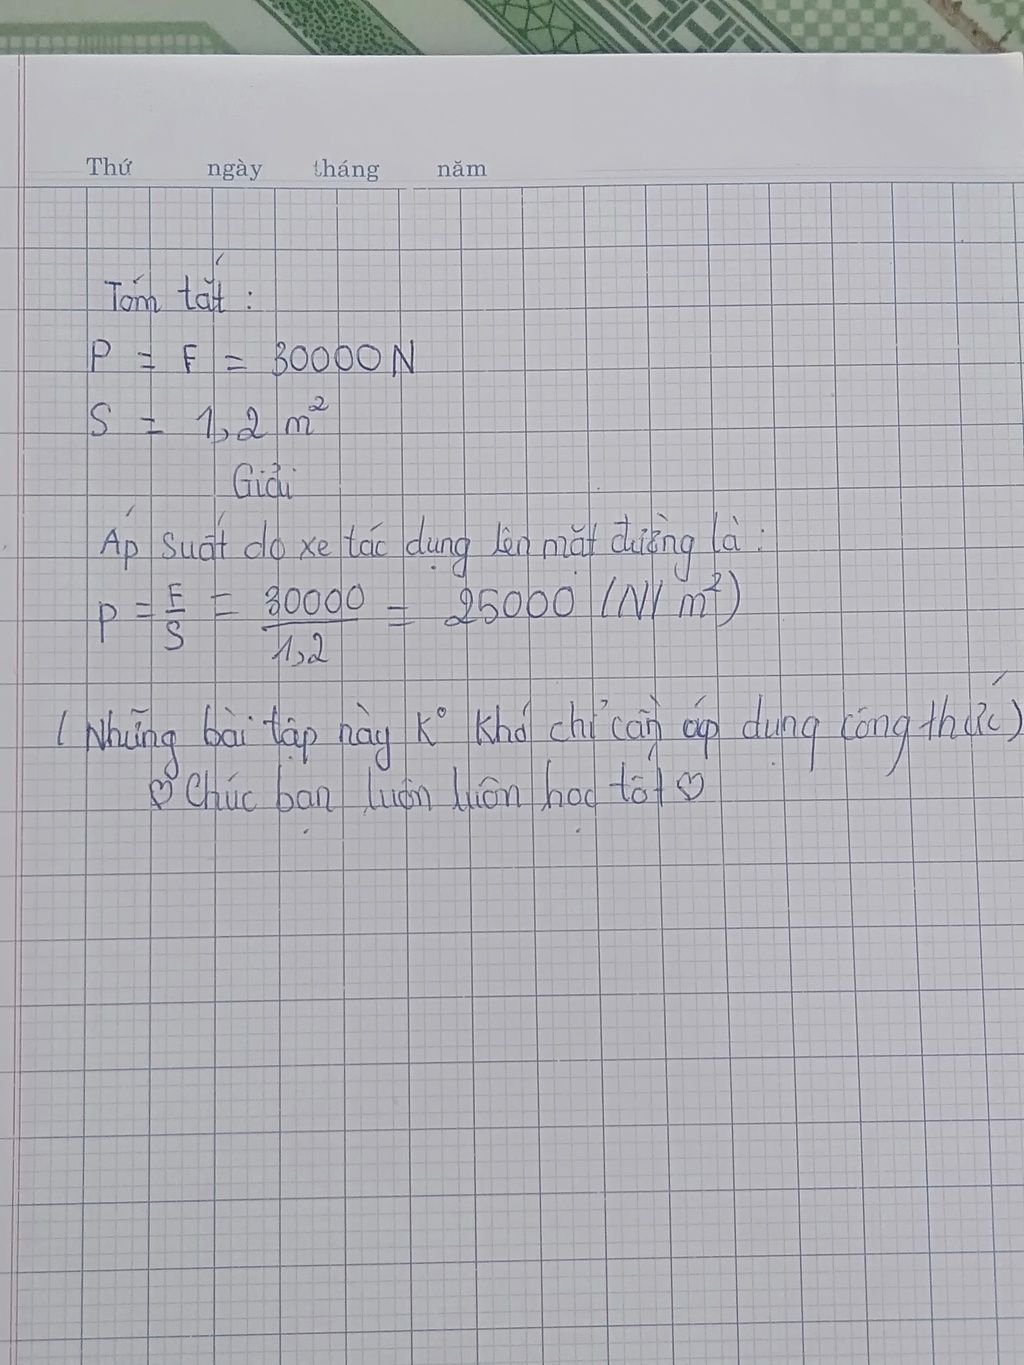 Thứ ngày tháng năm
Tóm tắt :
P = F = 30000 N
S = 1,2 m²
Giải
Áp suất do xe tác dụng lên mặt đường là :
p = F/S = 30000/1,2 = 25000 (N/m²)
( Những bài tập này K° khó chỉ cần áp dụng công thức)
♡ Chúc bạn luôn luôn học tốt ♡